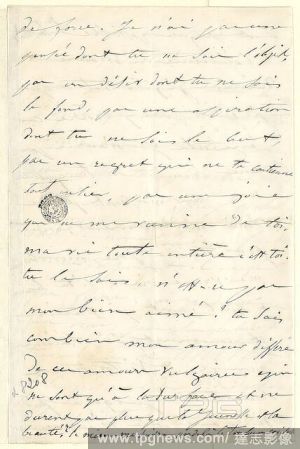 de force. Je n'ai pas une
pensée dont tu ne sois l'objet,
pas un désir dont tu ne sois
le fond, pas une aspiration
dont tu ne sois le but,
pas un regret qui ne te contienne
tout entier, pas une joie
qui ne me vienne de toi.
ma vie toute entière c'est toi.
tu le sais, n'est-ce pas
mon bien aimé? tu sais
combien mon amour diffère
de ces amours vulgaires qui
ne sont qu'à la surface et ne
durent pas plus que la
beauté, le mien
8208
www.tpgnews.com/達志影像